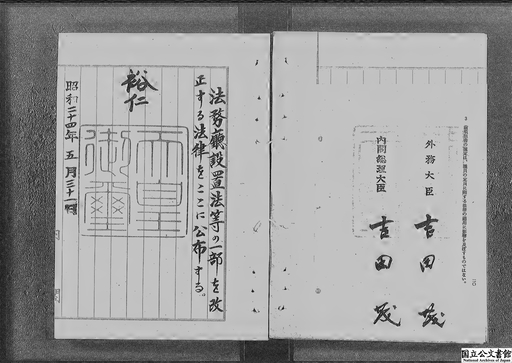 外務大臣 吉田茂
内閣総理大臣 吉田茂
法務廳設置法等の一部を改
正する法律をここに公布する。
裕仁
天皇
御璽
昭和二十四年五月三十一日
国立公文書館
National Archives of Japan